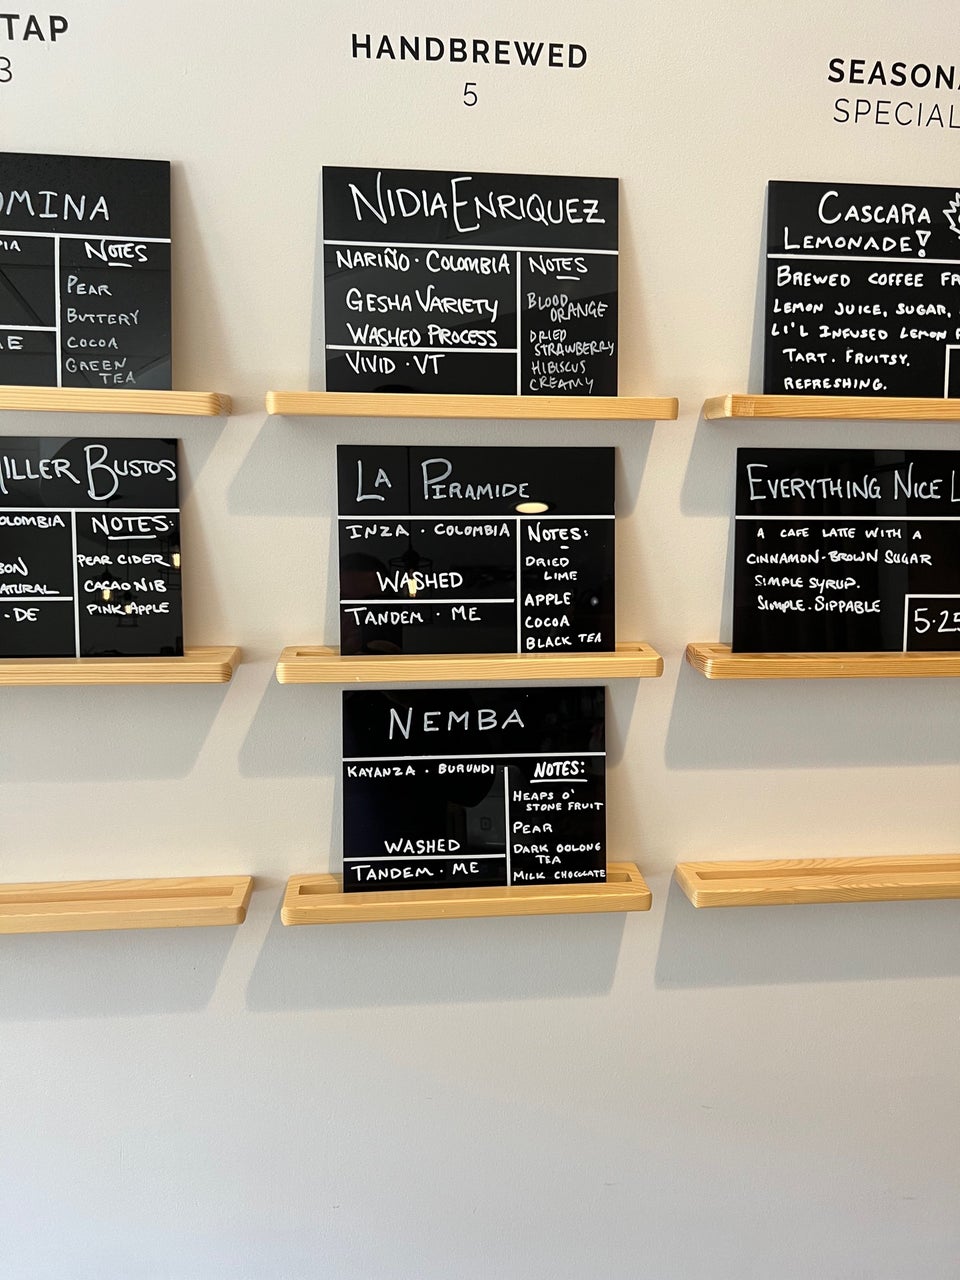 TAP
3
OMINA
NOTES
PEAR
BUTTERY
COCOA
GREEN
TEA
MILLER BUSTOS
COLOMBIA
NOTES:
PEAR CIDER
CACAO NIB
PINK APPLE
· DE
HANDBREWED
5
NIDIA ENRIQUEZ
NARIÑO · COLOMBIA
GESHA VARIETY
WASHED PROCESS
VIVID · VT
NOTES
BLOOD
ORANGE
DRIED
STRAWBERRY
HIBISCUS
CREAMY
LA PIRAMIDE
INZA · COLOMBIA
WASHED
TANDEM · ME
NOTES:
DRIED
LIME
APPLE
COCOA
BLACK TEA
NEMBA
KAYANZA · BURUNDI
WASHED
TANDEM · ME
NOTES:
HEAPS O'
STONE FRUIT
PEAR
DARK OOLONG
TEA
MILK CHOCOLATE
SEASONA
SPECIAL
CASCARA
LEMONADE!
BREWED COFFEE FR
LEMON JUICE, SUGAR,
LI'L INFUSED LEMON
TART. FRUITSY.
REFRESHING.
EVERYTHING NICE L
A CAFE LATTE WITH A
CINNAMON-BROWN SUGAR
SIMPLE SYRUP.
SIMPLE. SIPPABLE
5.25